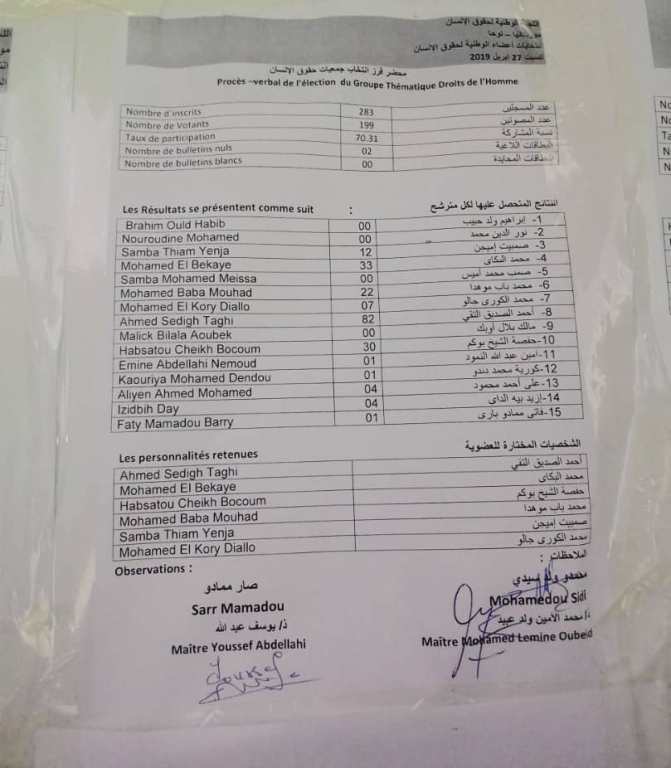 اللجنة الوطنية لحقوق الإنسان
انتخابات أعضاء الوطنية لحقوق الإنسان
السبت 27 ابريل 2019
محضر فرز انتخاب جمعيات حقوق الإنسان
Procès –verbal de l'élection du Groupe Thématique Droits de l'Homme
Nombre d'inscrits 283 عدد المسجلين
Nombre de Votants 199 عدد المصوتين
Taux de participation 70.31 نسبة المشاركة
Nombre de bulletins nuls 02 البطاقات اللاغية
Nombre de bulletins blancs 00 البطاقات المحايدة
Les Résultats se présentent comme suit : النتائج المتحصل عليها لكل مترشح
Brahim Ould Habib 00 1- إبراهيم ولد حبيب
Nouroudine Mohamed 00 2- نور الدين محمد
Samba Thiam Yenja 12 3- صمبيت إميجن
Mohamed El Bekaye 33 4- محمد البكاي
Samba Mohamed Meissa 00 5- صمب محمد أميس
Mohamed Baba Mouhad 22 6- محمد باب موهدا
Mohamed El Kory Diallo 07 7- محمد الكورى جالو
Ahmed Sedigh Taghi 82 8- أحمد الصديق التقي
Malick Bilala Aoubek 00 9- مالك بلال أوبك
Habsatou Cheikh Bocoum 30 10- حفصة الشيخ بوكم
Emine Abdellahi Nemoud 01 11- امين عبد الله النمود
Kaouriya Mohamed Dendou 01 12- كورية محمد دندو
Aliyen Ahmed Mohamed 04 13- على أحمد محمود
Izidbih Day 04 14- إزيد بيه الداى
Faty Mamadou Barry 01 15- فاتى ممادو بارى
Les personnalités retenues الشخصيات المختارة للعضوية
Ahmed Sedigh Taghi أحمد الصديق التقي
Mohamed El Bekaye محمد البكاى
Habsatou Cheikh Bocoum حفصة الشيخ بوكم
Mohamed Baba Mouhad محمد باب موهدا
Samba Thiam Yenja صمبيت إميجن
Mohamed El Kory Diallo محمد الكورى جالو
Observations : الملاحظات :
صار ممادو
Sarr Mamadou
ذ/ يوسف عبد الله
Maître Youssef Abdellahi
محمدو ولد سيدي
Mohamedou Sidi
ذ/ محمد الأمين ولد عبيد
Maître Mohamed Lemine Oubeid
Youssef